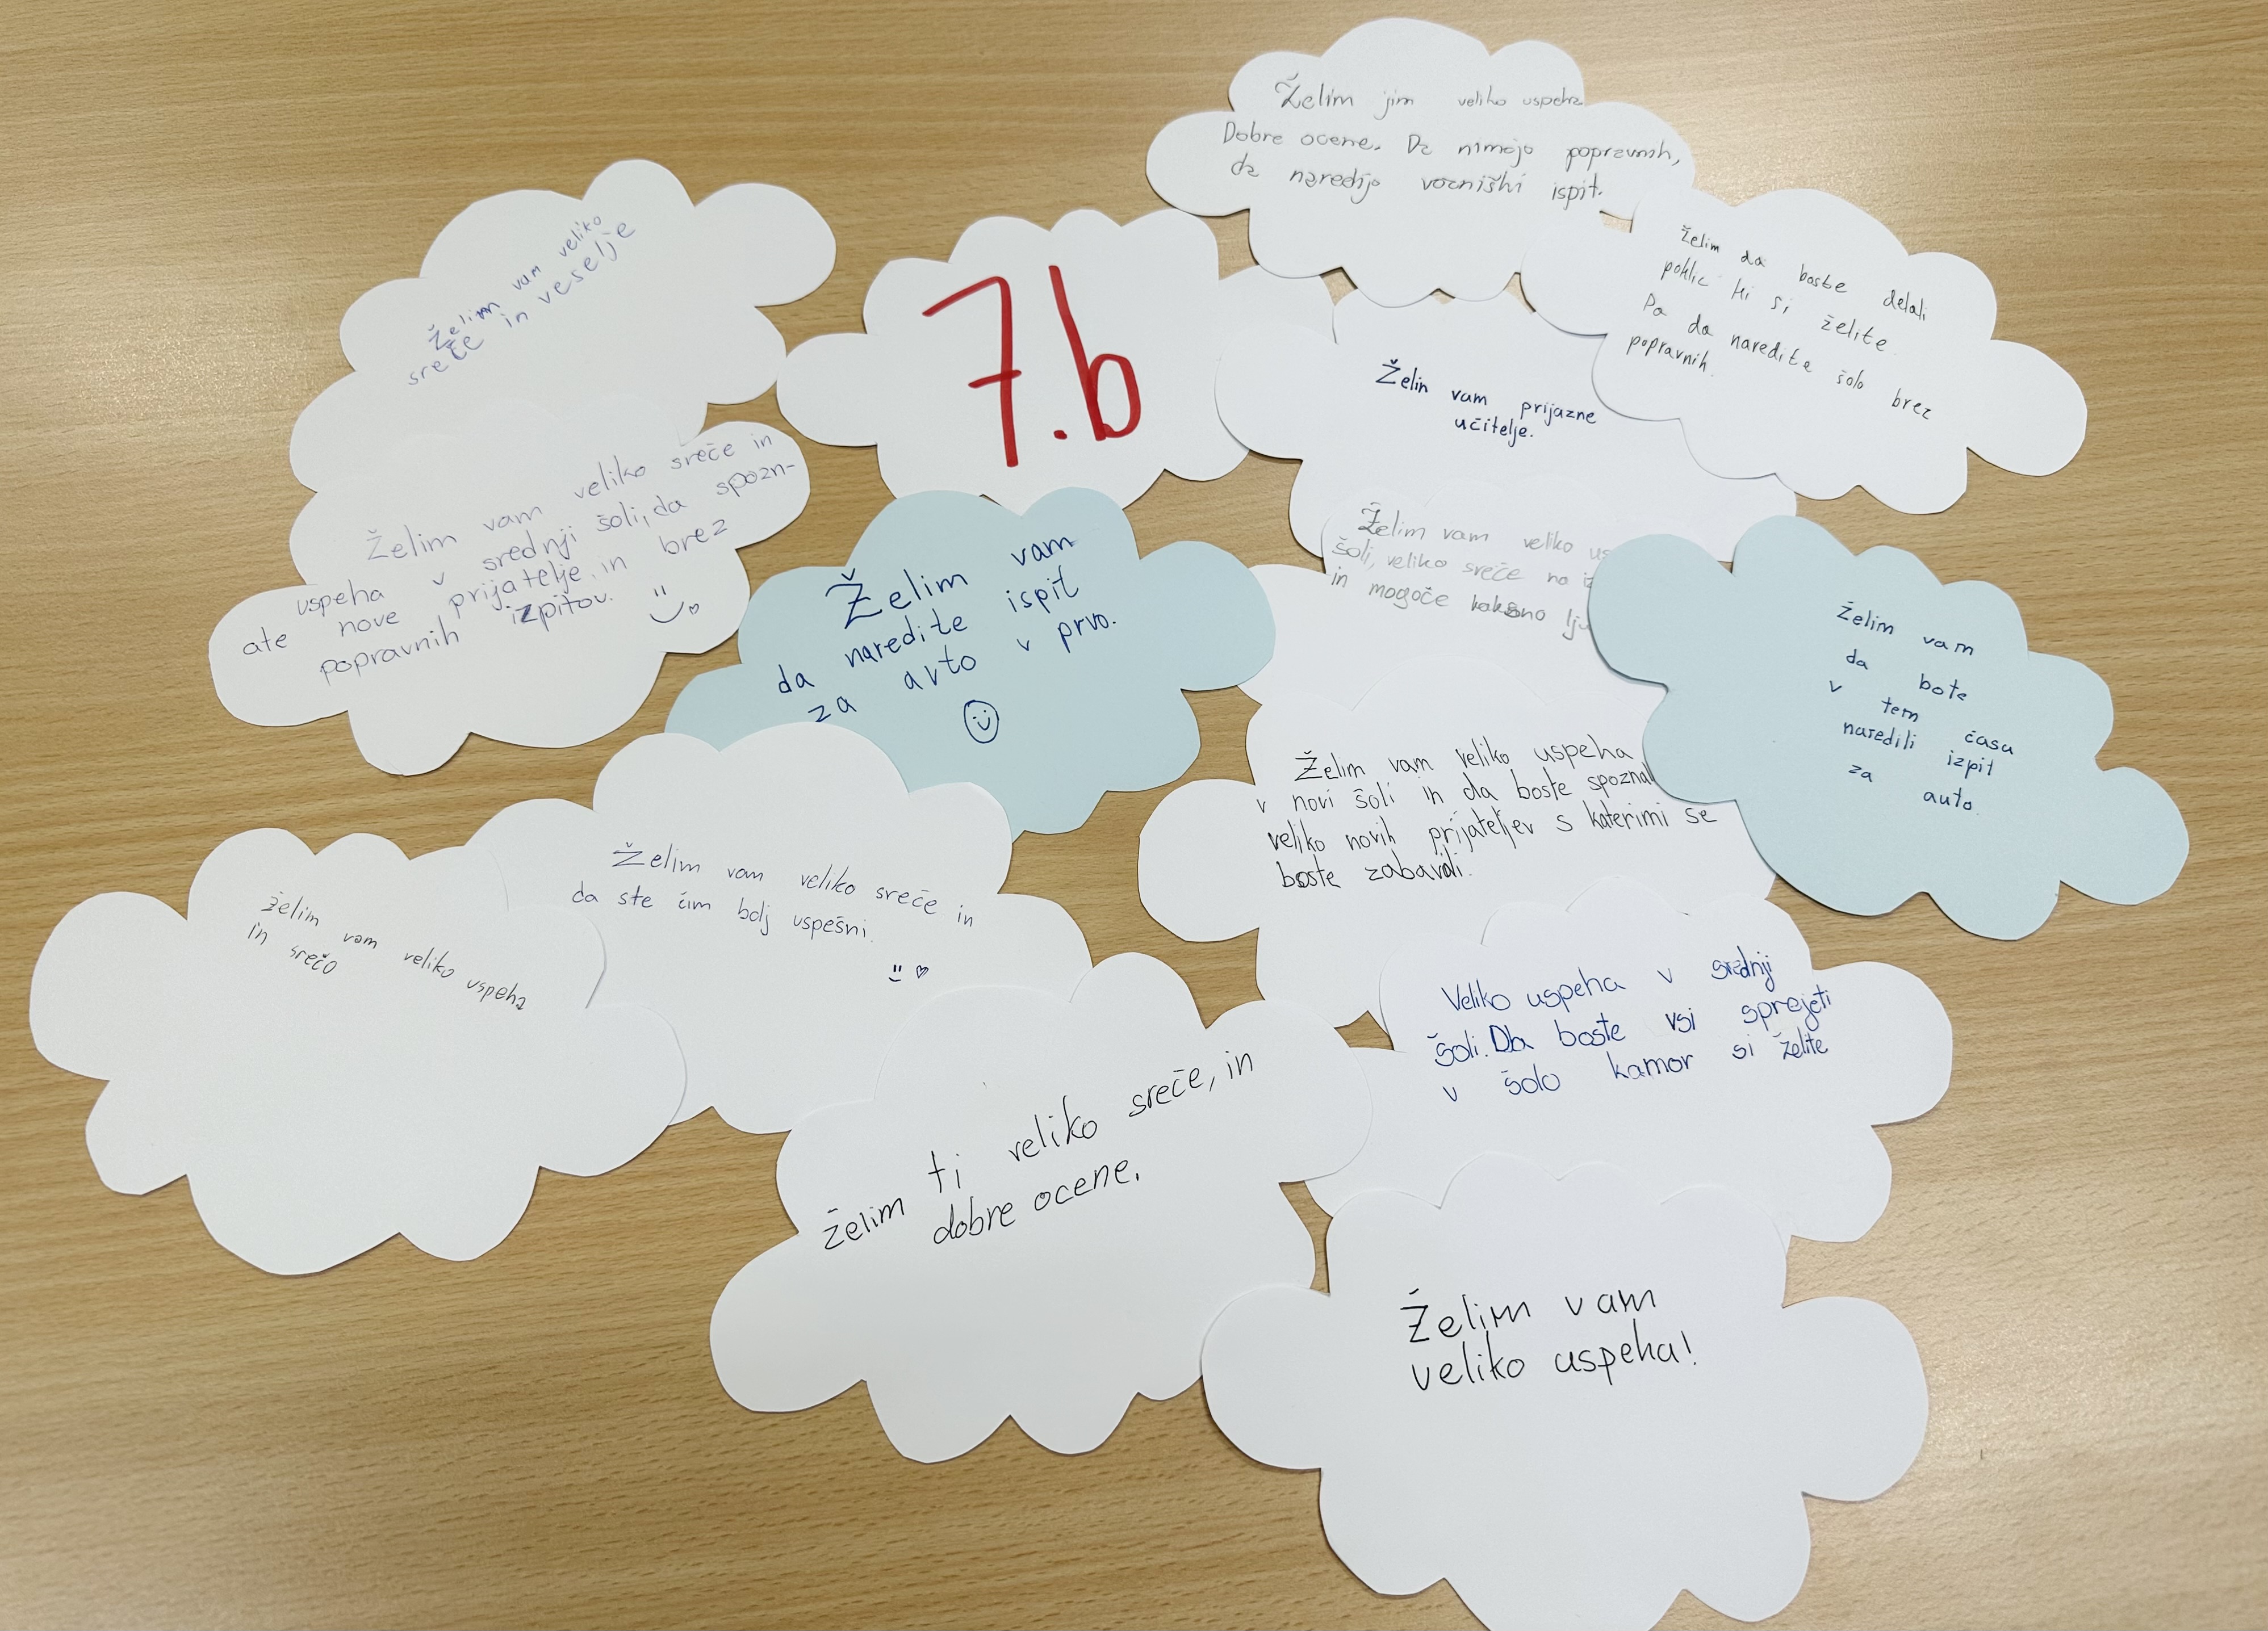 Želim jim veliko uspeha.
Dobre ocene. Da nimajo popravnih,
da naredijo vozniški ispit.
Želim da boste delali
poklic ki si želite
Pa da naredite šolo brez
popravnih.
Želim vam veliko
sreče in veselje
7.b
Želin vam prijazne
učitelje.
Želim vam veliko sreče in
uspeha v srednji šoli, da spozn-
ate nove prijatelje in brez
popravnih izpitov.
Želim vam
da naredite ispit
za avto v prvo.
Želim vam veliko
šoli, veliko sreče na
in mogoče kakšno
Želim vam
da bote
v tem času
naredili izpit
za auto.
Želim vam veliko uspeha
v novi šoli in da boste
veliko novih prijateljev s katerimi se
boste zabavali.
Želim vam veliko sreče in
da ste čim bolj uspešni.
želim vam veliko uspeha
in srečo
Veliko uspeha v srednji
šoli. Da boste vsi sprejeti
v šolo kamor si želite
želim ti veliko sreče, in
dobre ocene.
Želim vam
veliko uspeha!